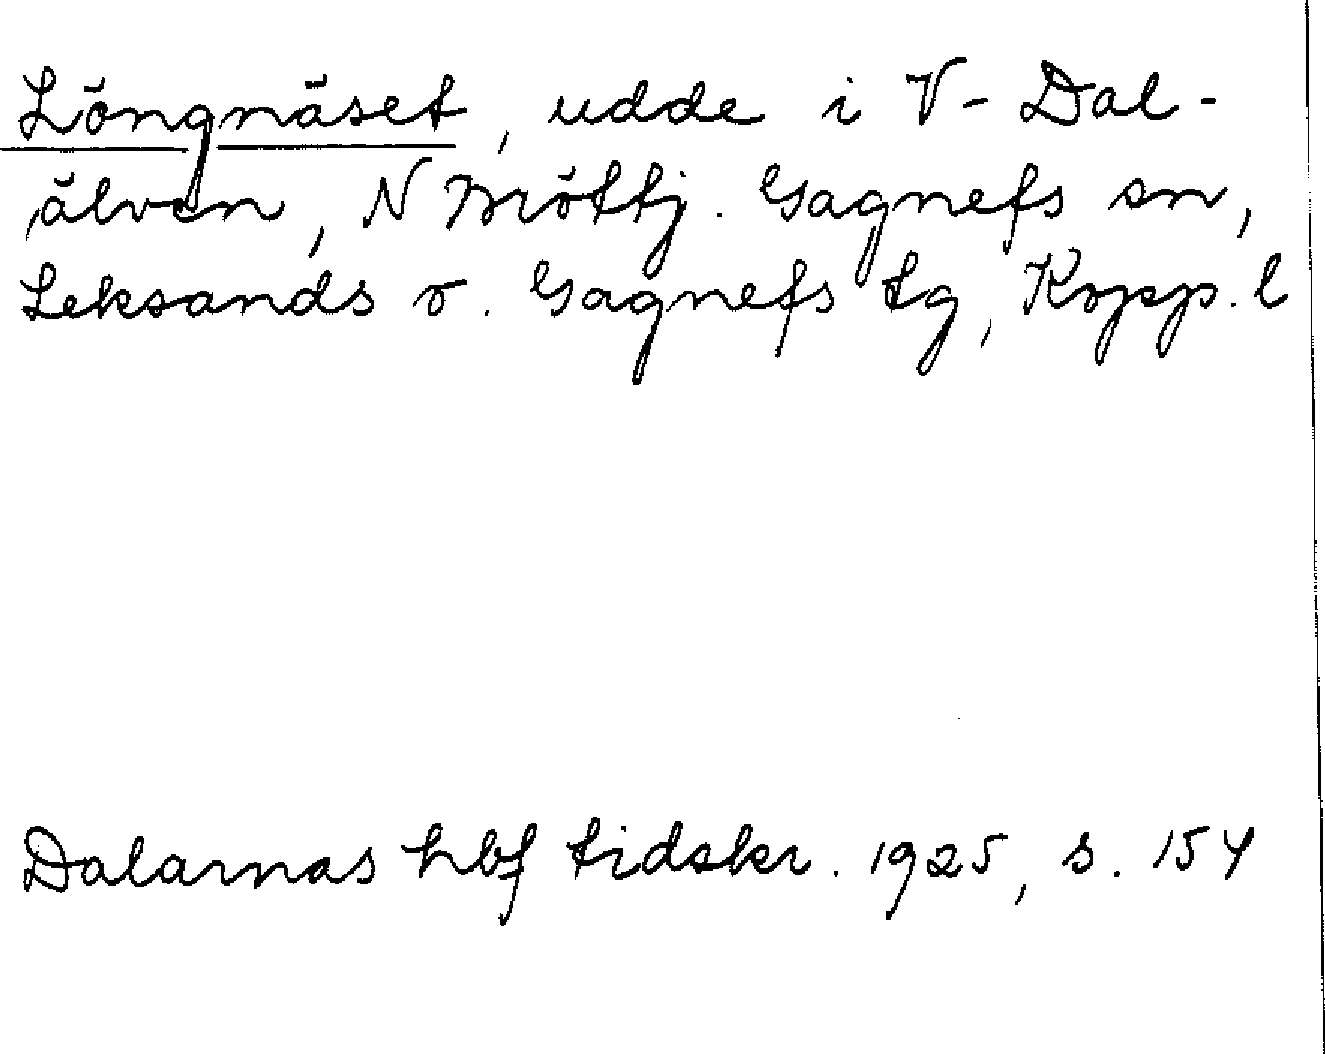 Löngnäset, udde i V-Dal-
älven, N Mröttj. Gagnefs sn,
Leksands o. Gagnefs tg, Kopp. l
Dalarnas hbf tidskr. 1925, s. 154